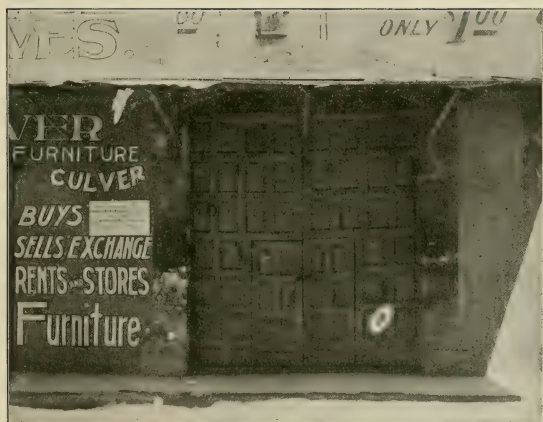 ONLY 1.00
VER
FURNITURE
CULVER
BUYS
SELLS EXCHANGE
RENTS AND STORES
Furniture